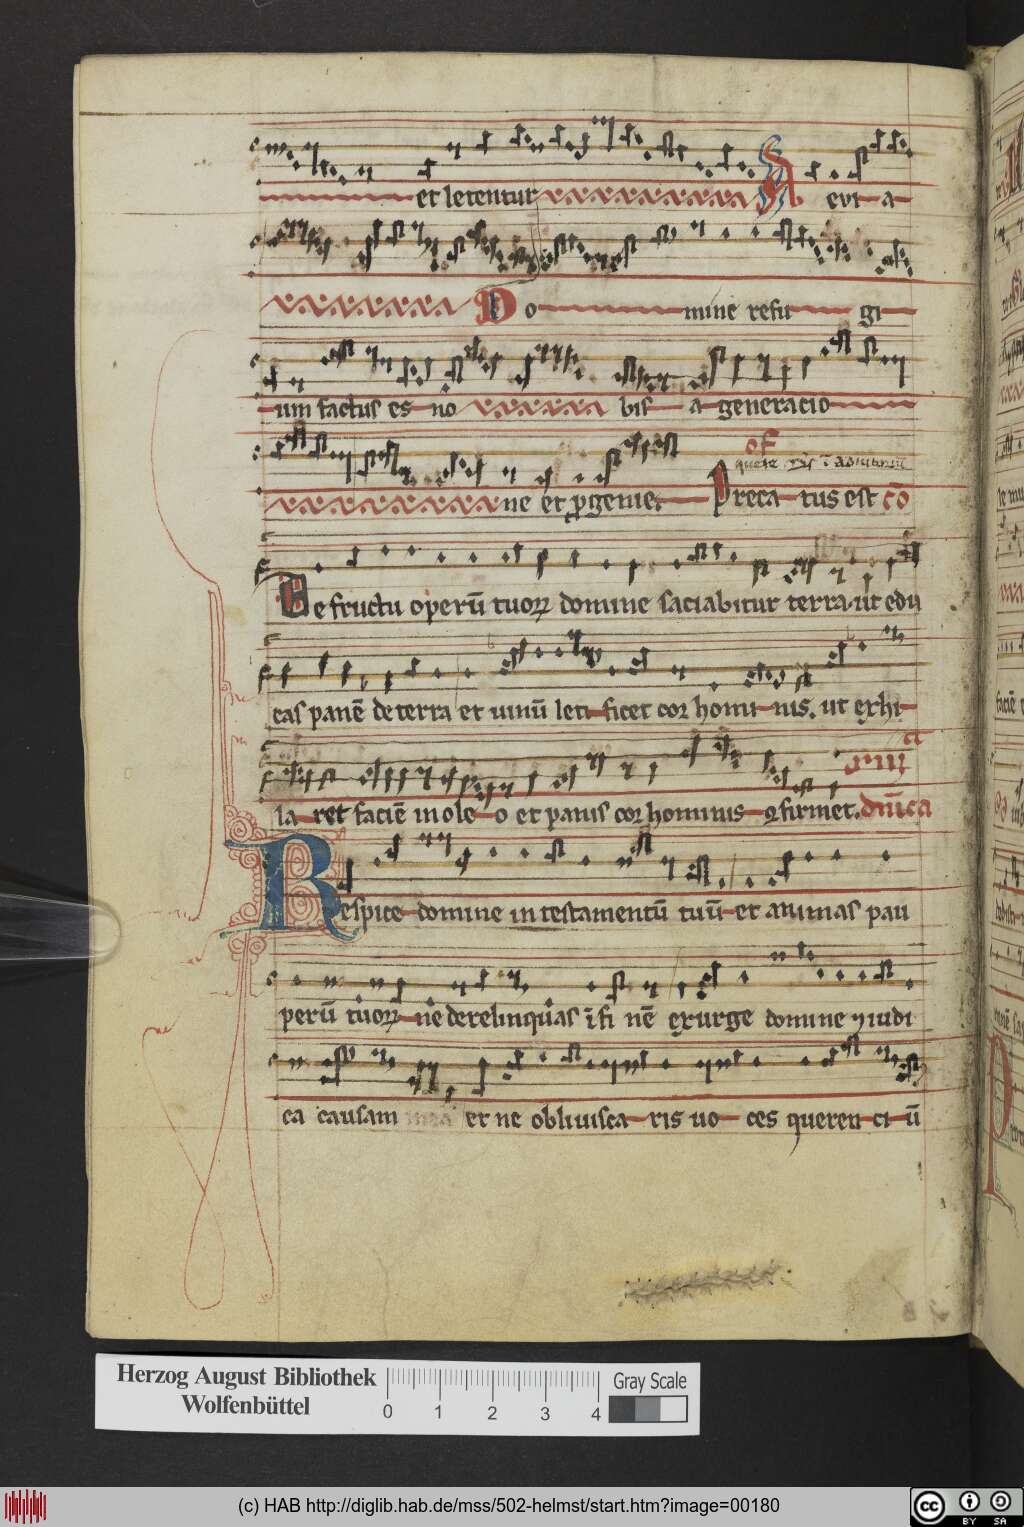 et letentur A evi a
Do mine refu gi
um factus es no bis a generacio
of
ne et progenie. Precatus est co
De fructu operū tuoꝝ domine saciabitur terra. ut edu
cas panē de terra et uinū leti ficet cor homi nis. ut exhi
la ret faciē in ole o et panis cor hominis ꝯfirmet. dn̄ica
Respice domine in testamentū tuū et animas pau
perū tuoꝝ ne derelinquas ī fi nē exurge domine ⁊ iudi
ca causam et ne obliuisca ris uo ces queren ci ū
Herzog August Bibliothek
Wolfenbüttel
0 1 2 3 4
Gray Scale
(c) HAB http://diglib.hab.de/mss/502-helmst/start.htm?image=00180
cc BY SA